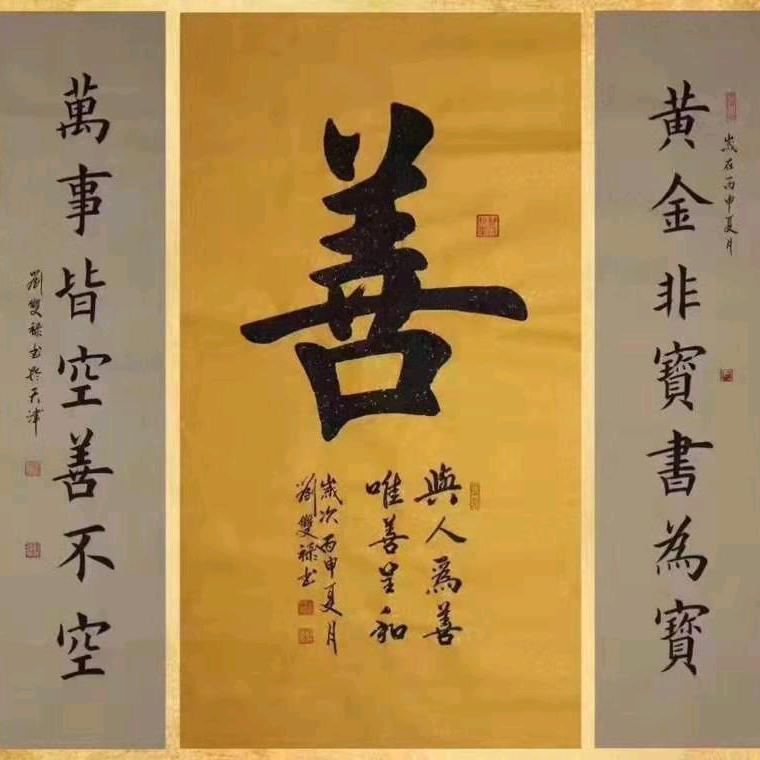 歲在丙申夏月
黄金非寶書為寶
善
與人爲善
唯善呈和
歲次丙申夏月
劉雙祿书
萬事皆空善不空
劉雙祿书於天津